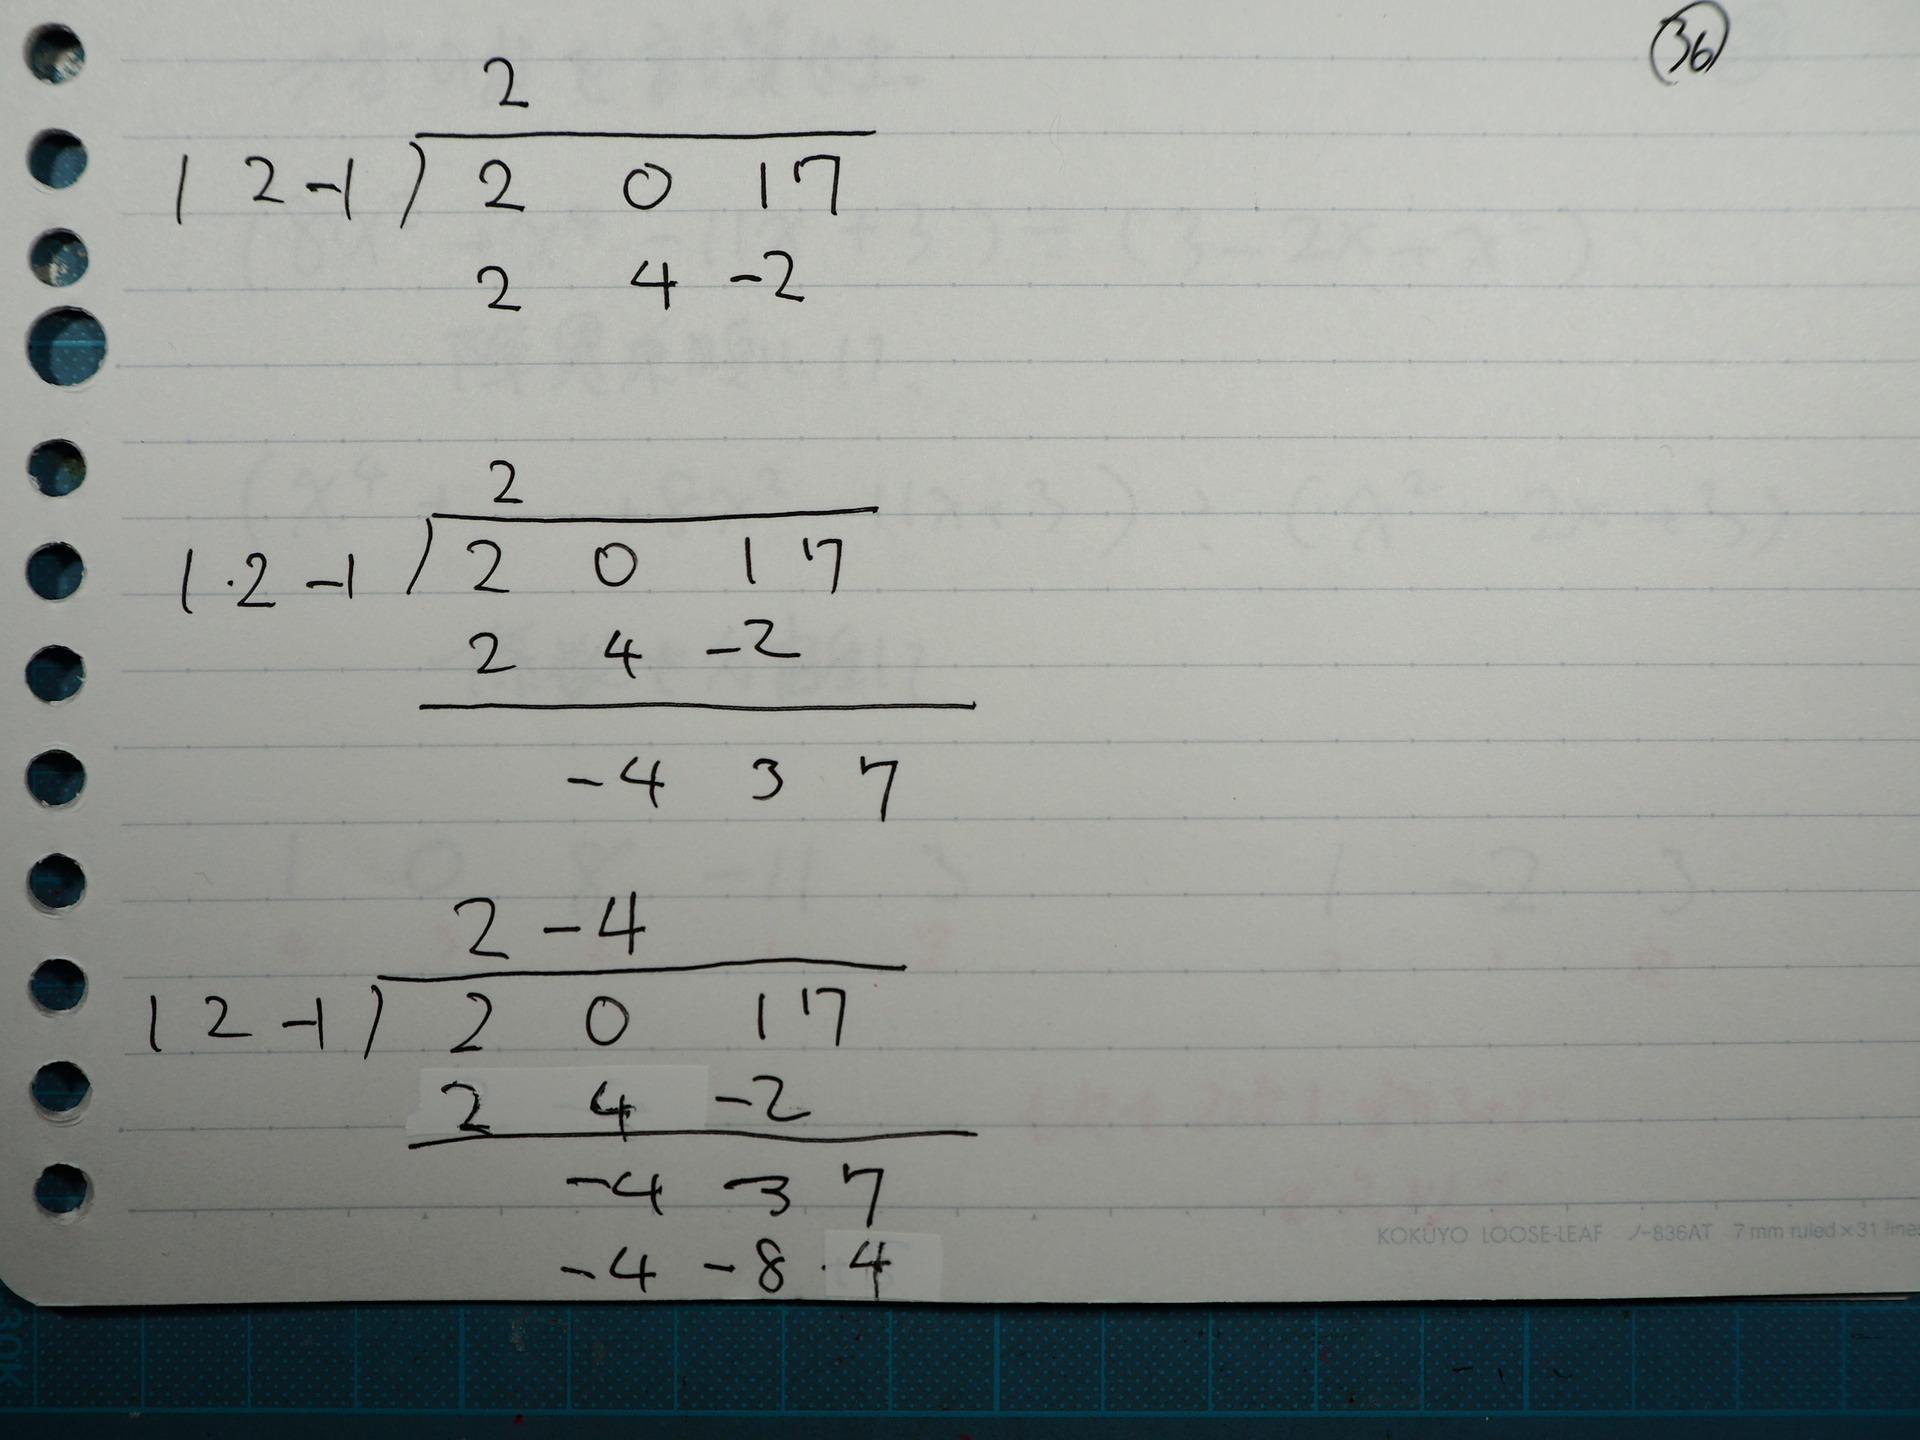 36
2
1 2 -1 ) 2 0 1 7
2 4 -2
2
1 2 -1 ) 2 0 1 7
2 4 -2
-4 3 7
2 -4
1 2 -1 ) 2 0 1 7
2 4 -2
-4 3 7
-4 -8 4
KOKUYO LOOSE-LEAF ノ-836AT 7mm ruled×31 lines